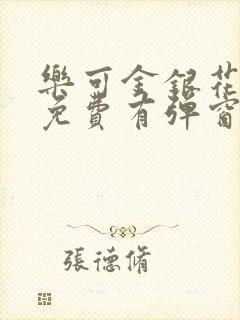 樂可金銀花
免費有彈窗
張德脩